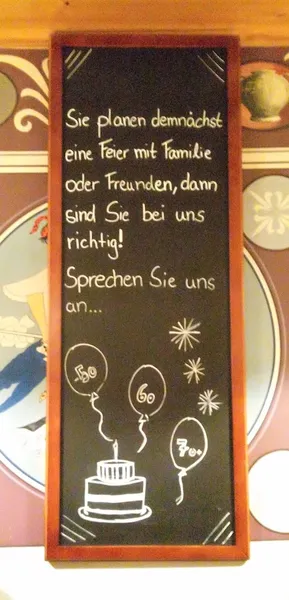 Sie planen demnächst
eine Feier mit Familie
oder Freunden, dann
sind Sie bei uns
richtig!
Sprechen Sie uns
an...
50
60
70